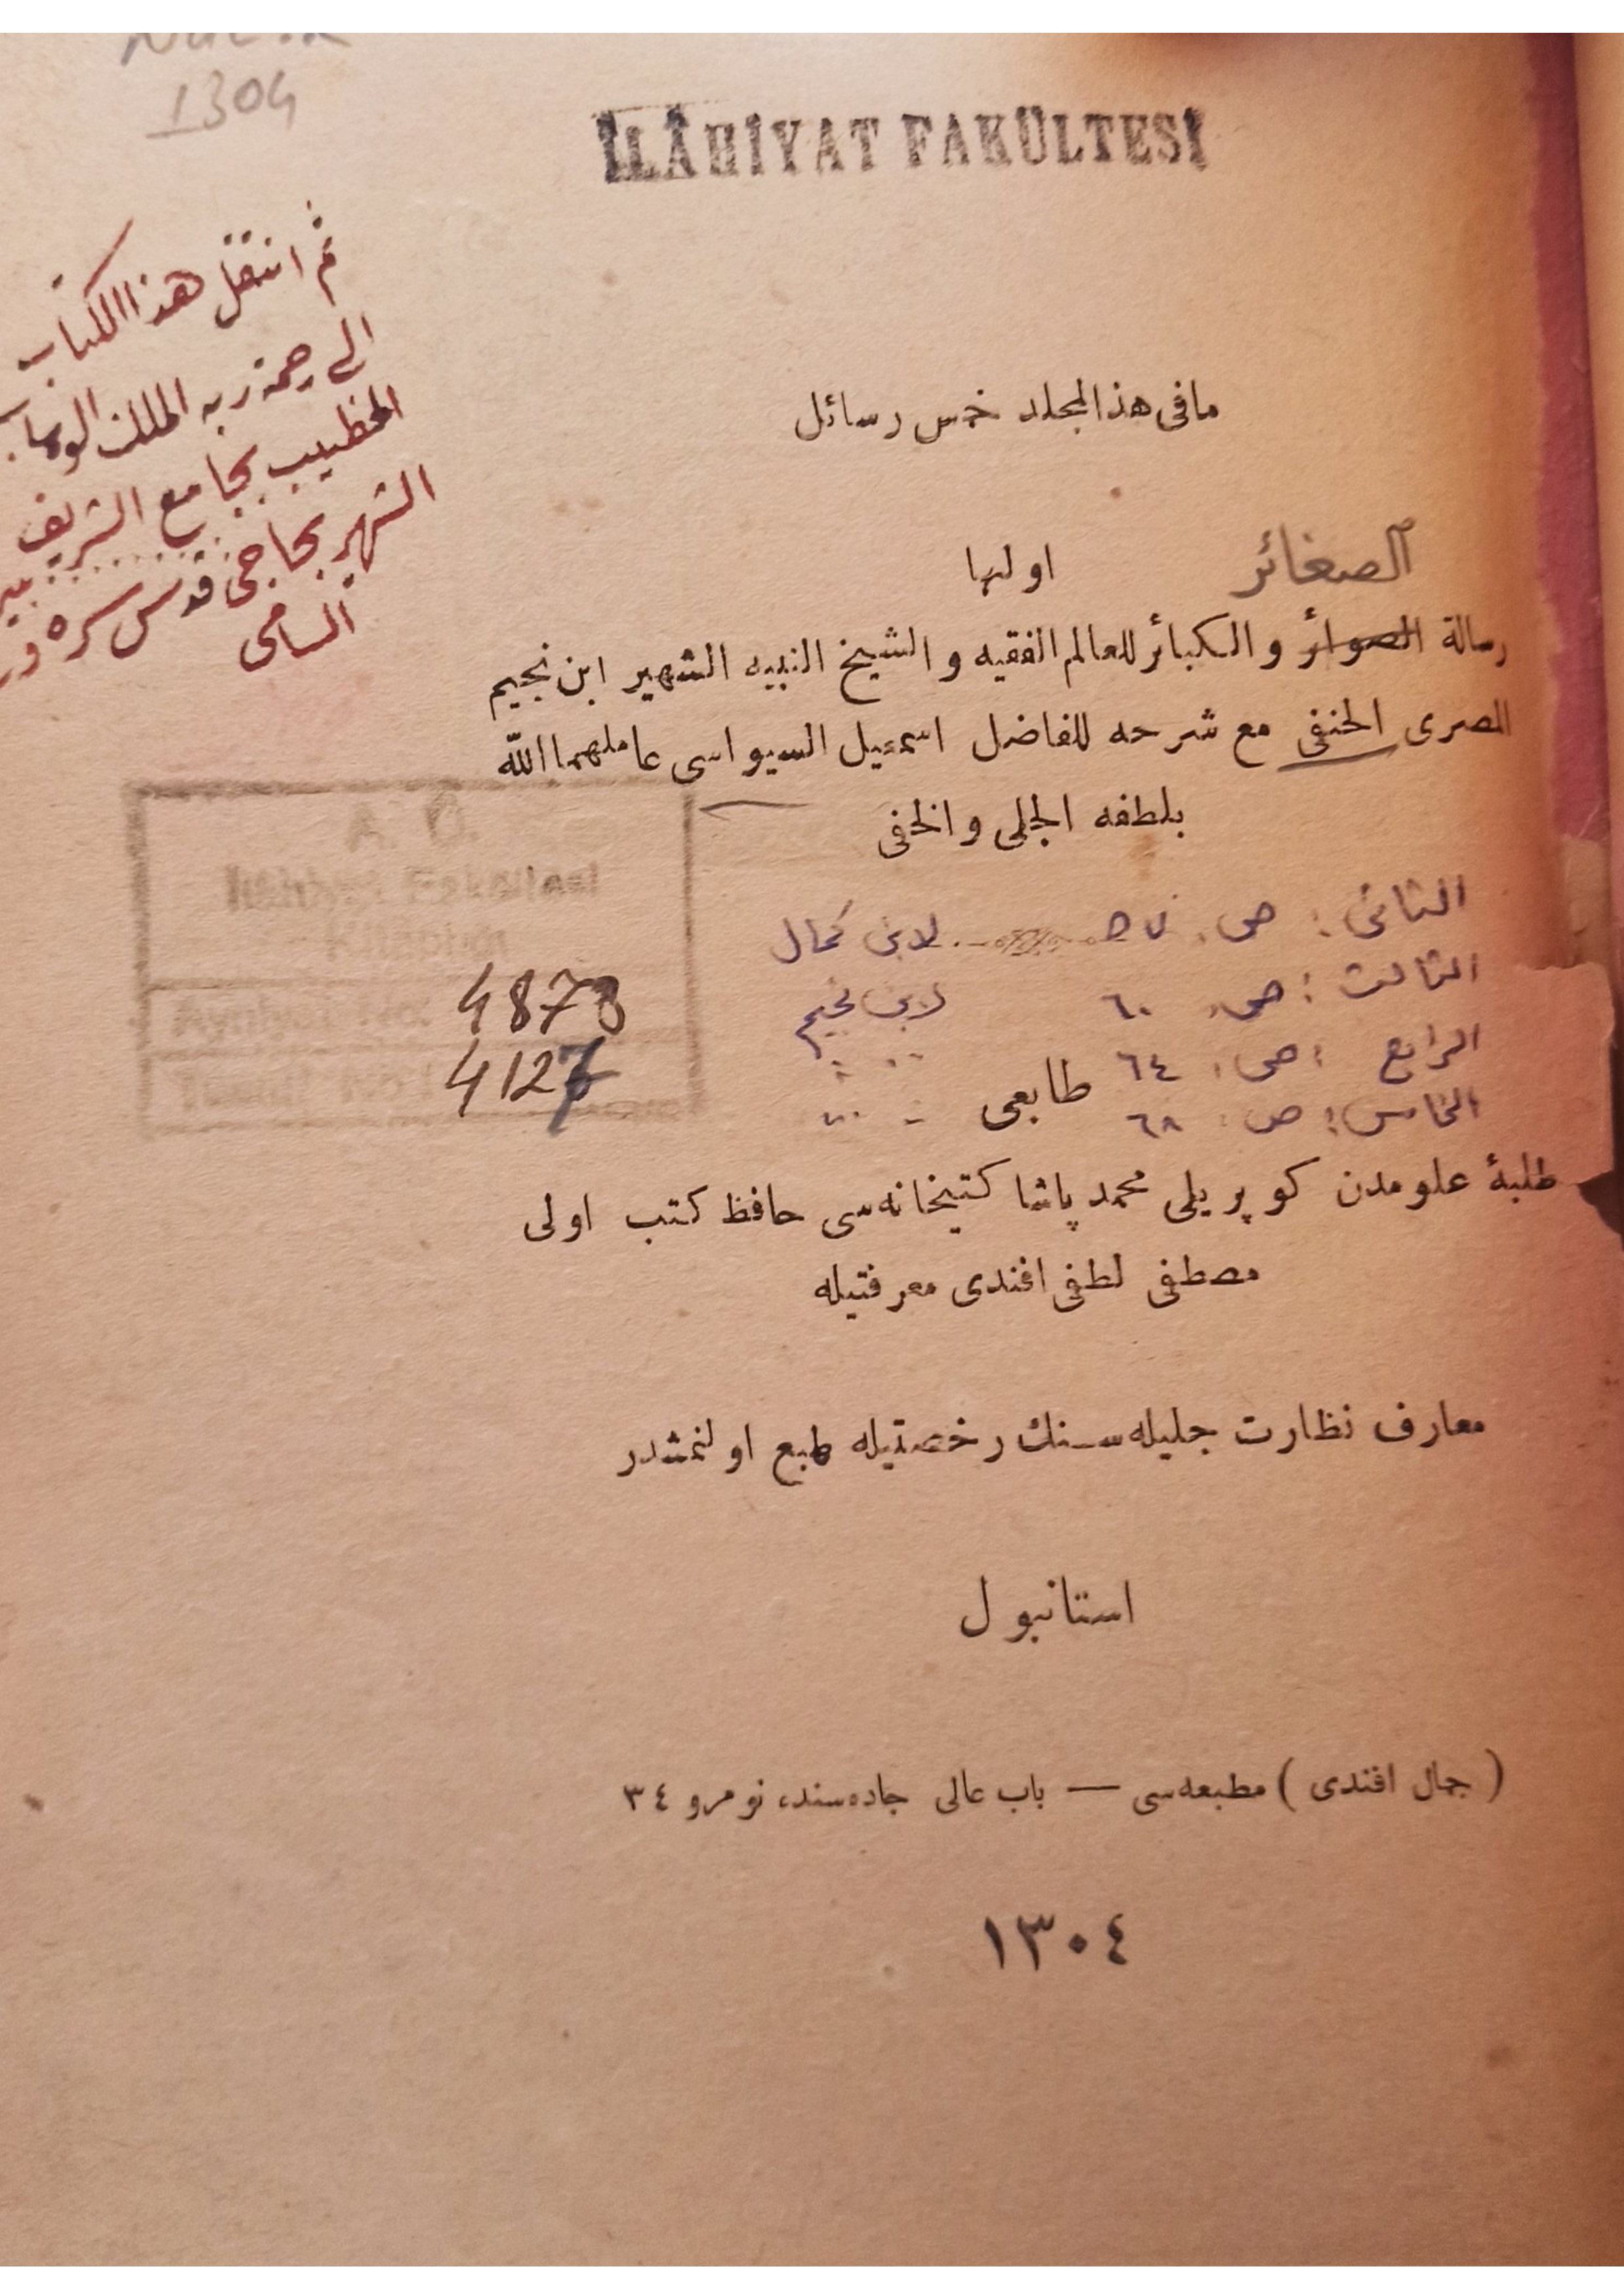 1304
İLÂHİYAT FAKÜLTESİ
ثم انتقل هذا الكتاب
الى رحمة ربه الملك الوهاب
الخطيب بجامع الشريف
الشهير بحاجى قدس سره
السامى
مافى هذا المجلد خمس رسائل
الصغائر
اولها
رسالة الصوائر و الكبائر للعالم الفقيه و الشيخ النبيه الشهير ابن نجيم
المصرى الحنفى مع شرحه للفاضل اسمعيل السيواسى عاملهما الله
بلطفه الجلى والخفى
A. Ü.
İlâhiyat Fakültesi
4878
4127
الثانى : ص ٥٧ لابن كمال
الثالث : ص ٦٠ لابن نجيم
الرابع : ص ٦٤
الخامس : ص ٦٨
طابعى
طلبۀ علومدن كوپريلى محمد پاشا كتبخانه‌سى حافظ كتب اولى
مصطفى لطفى افندى معرفتيله
معارف نظارت جليله‌سنك رخصتيله طبع اولنمشدر
استانبول
( جمال افندى ) مطبعه‌سى — باب عالى جاده‌سنده نومرو ٣٤
١٣٠٤